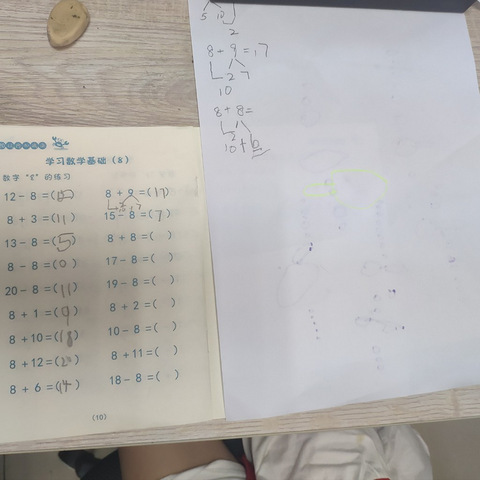 5 10
2
8+9=17
2 7
10
8+8=
2
10+6
学习数学基础（8）
数字“8”的练习
12-8=( )
8+9=(17)
2 7
10
8+3=(11)
15-8=(7)
13-8=(5)
8+8=( )
8-8=(0)
17-8=( )
20-8=(11)
19-8=( )
8+1=(9)
8+2=( )
8+10=(18)
10-8=( )
8+12=(20)
8+11=( )
8+6=(14)
18-8=( )
(10)